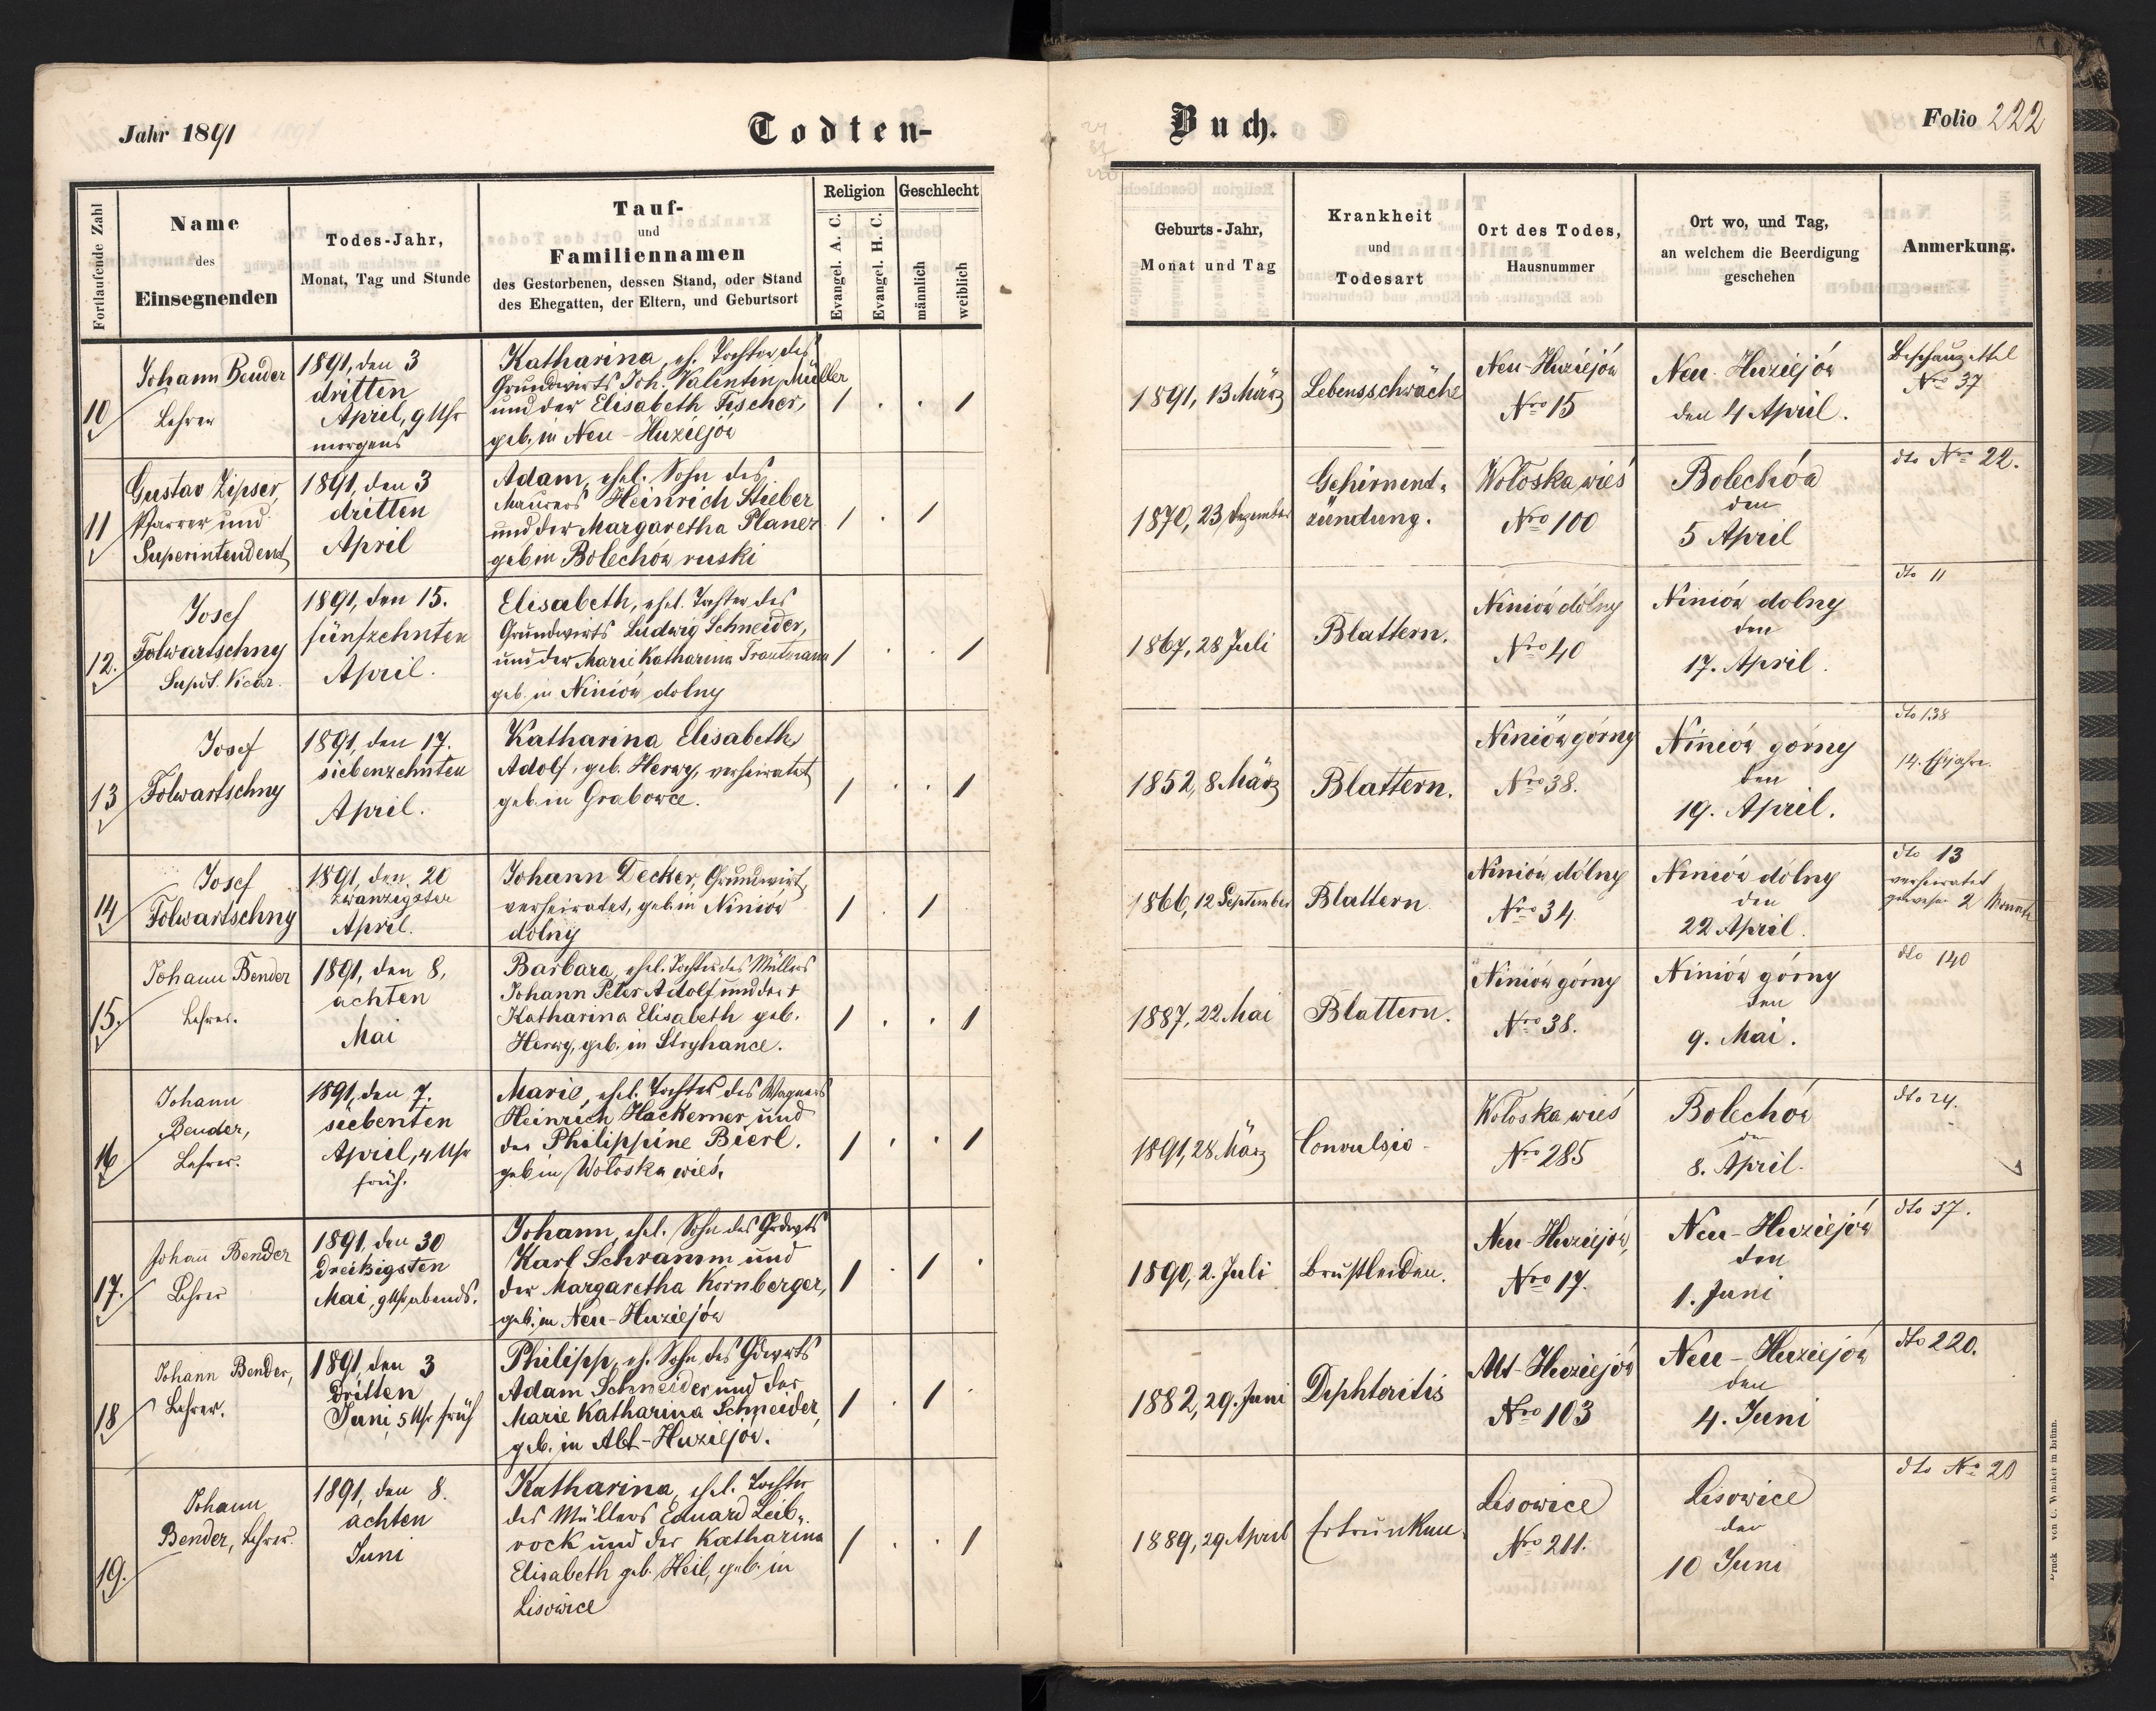 Jahr 1891
Todten-
Buch.
Folio 222
Fortlaufende Zahl
Name
des
Einsegnenden
Todes-Jahr,
Monat, Tag und Stunde
Tauf-
und
Familiennamen
des Gestorbenen, dessen Stand, oder Stand
des Ehegatten, der Eltern, und Geburtsort
Religion
Evangel. A. C.
Evangel. H. C.
Geschlecht
männlich
weiblich
Geburts-Jahr,
Monat und Tag
Krankheit
und
Todesart
Ort des Todes,
Hausnummer
Ort wo, und Tag,
an welchem die Beerdigung
geschehen
Anmerkung.
10
Johann Bender
Lehrer
1891, den 3
dritten
April, 9 Uhr
morgens
Katharina, eh. Tochter des
Grundwirts Joh. Valentin Müller
und der Elisabeth Fischer,
geb. in Neu-Huziejów
1 . . 1
1891, 13 März
Lebensschwäche
Neu-Huziejów
Nro 15
Neu-Huziejów
den 4 April.
Beschauzettel
Nro 37
11
Gustav Zipser,
Pfarrer und
Superintendent
1891, den 3
dritten
April
Adam, ehel. Sohn des
Maurers Heinrich Stieber
und der Margaretha Planer
geb in Bolechów ruski
1 . 1
1870, 23 Dezember
Gehirnent-
zündung.
Wołoska wieś
Nro 100
Bolechów
den
5 April
dto Nro 22.
12.
Josef
Folwartschny
Supdt. Vicar.
1891, den 15.
fünfzehnten
April.
Elisabeth, ehel. Tochter des
Grundwirts Ludwig Schneider,
und der Marie Katharina Trautmann
geb. in Niniów dolny
1 . . 1
1867, 28 Juli
Blattern.
Niniów dólny
Nro 40
Niniów dolny
den
17. April.
dto 11
13
Josef
Folwartschny
1891, den 17.
siebenzehnten
April.
Katharina Elisabeth
Adolf, geb. Herwy, verheiratet
geb. in Grabowce.
1 . . 1
1852, 8 März
Blattern.
Niniów górny
Nro 38.
Niniów górny
den
19. April.
dto 138
14. Ehejahre.
14
Josef
Folwartschny
1891, den 20
zwanzigsten
April.
Johann Decker, Grundwirt,
verheiratet, geb. in Niniów
dolny
1 . 1
1866, 12 September
Blattern
Niniów dólny
Nro 34.
Niniów dólny
den
22 April.
dto 13
verheiratet
gewesen 2 Monate
15.
Johann Bender
Lehrer.
1891, den 8,
achten
Mai
Barbara, ehel. Tochter des Müllers
Johann Peter Adolf und der +
Katharina Elisabeth geb.
Herwy, geb. in Stryhance.
1 . . 1
1887, 22 Mai
Blattern.
Niniów górny
Nro 38.
Niniów górny
den
9. Mai.
dto 140
16
Johann
Bender,
Lehrer.
1891, den 7.
siebenten
April, 4 Uhr
früh.
Marie, ehel. Tochter des Wagners
Heinrich Hackemer und
der Philippine Bierl.
geb in Wołoska wieś.
1 . . 1
1891, 28 März
Convulsio-
Wołoska wieś
Nro 285
Bolechów
den
8. April.
dto 24.
17.
Johan Bender
Lehrer
1891, den 30
dreißigsten
Mai, 9 Uhr abends.
Johann, ehel. Sohn des Grdwts
Karl Schramm und
der Margaretha Kornberger,
geb. in Neu-Huziejów
1 . 1 .
1890, 2. Juli
Brustleiden.
Neu-Huziejów,
Nro 17.
Neu-Huziejów
den
1. Juni
dto 37.
18
Johann Bender,
Lehrer.
1891, den 3
dritten
Juni, 5 Uhr früh
Philipp, eh. Sohn des Gdwrts
Adam Schneider und der
Marie Katharina Schneider,
geb. in Alt-Huziejów.
1 . 1 .
1882, 29. Juni
Diphteritis
Alt-Huziejów
Nro 103
Neu-Huziejów
den
4. Juni
dto 220.
19.
Johann
Bender, Lehrer.
1891, den 8.
achten
Juni
Katharina, ehel. Tochter
des Müllers Eduard Leib-
rock und der Katharina
Elisabeth geb. Heil, geb. in
Lisowice
1 . . 1
1889, 29 April
Ertrunken.
Lisowice
Nro 211.
Lisowice
den
10 Juni
dto No 20
Druck von C. Winiker in Brünn.